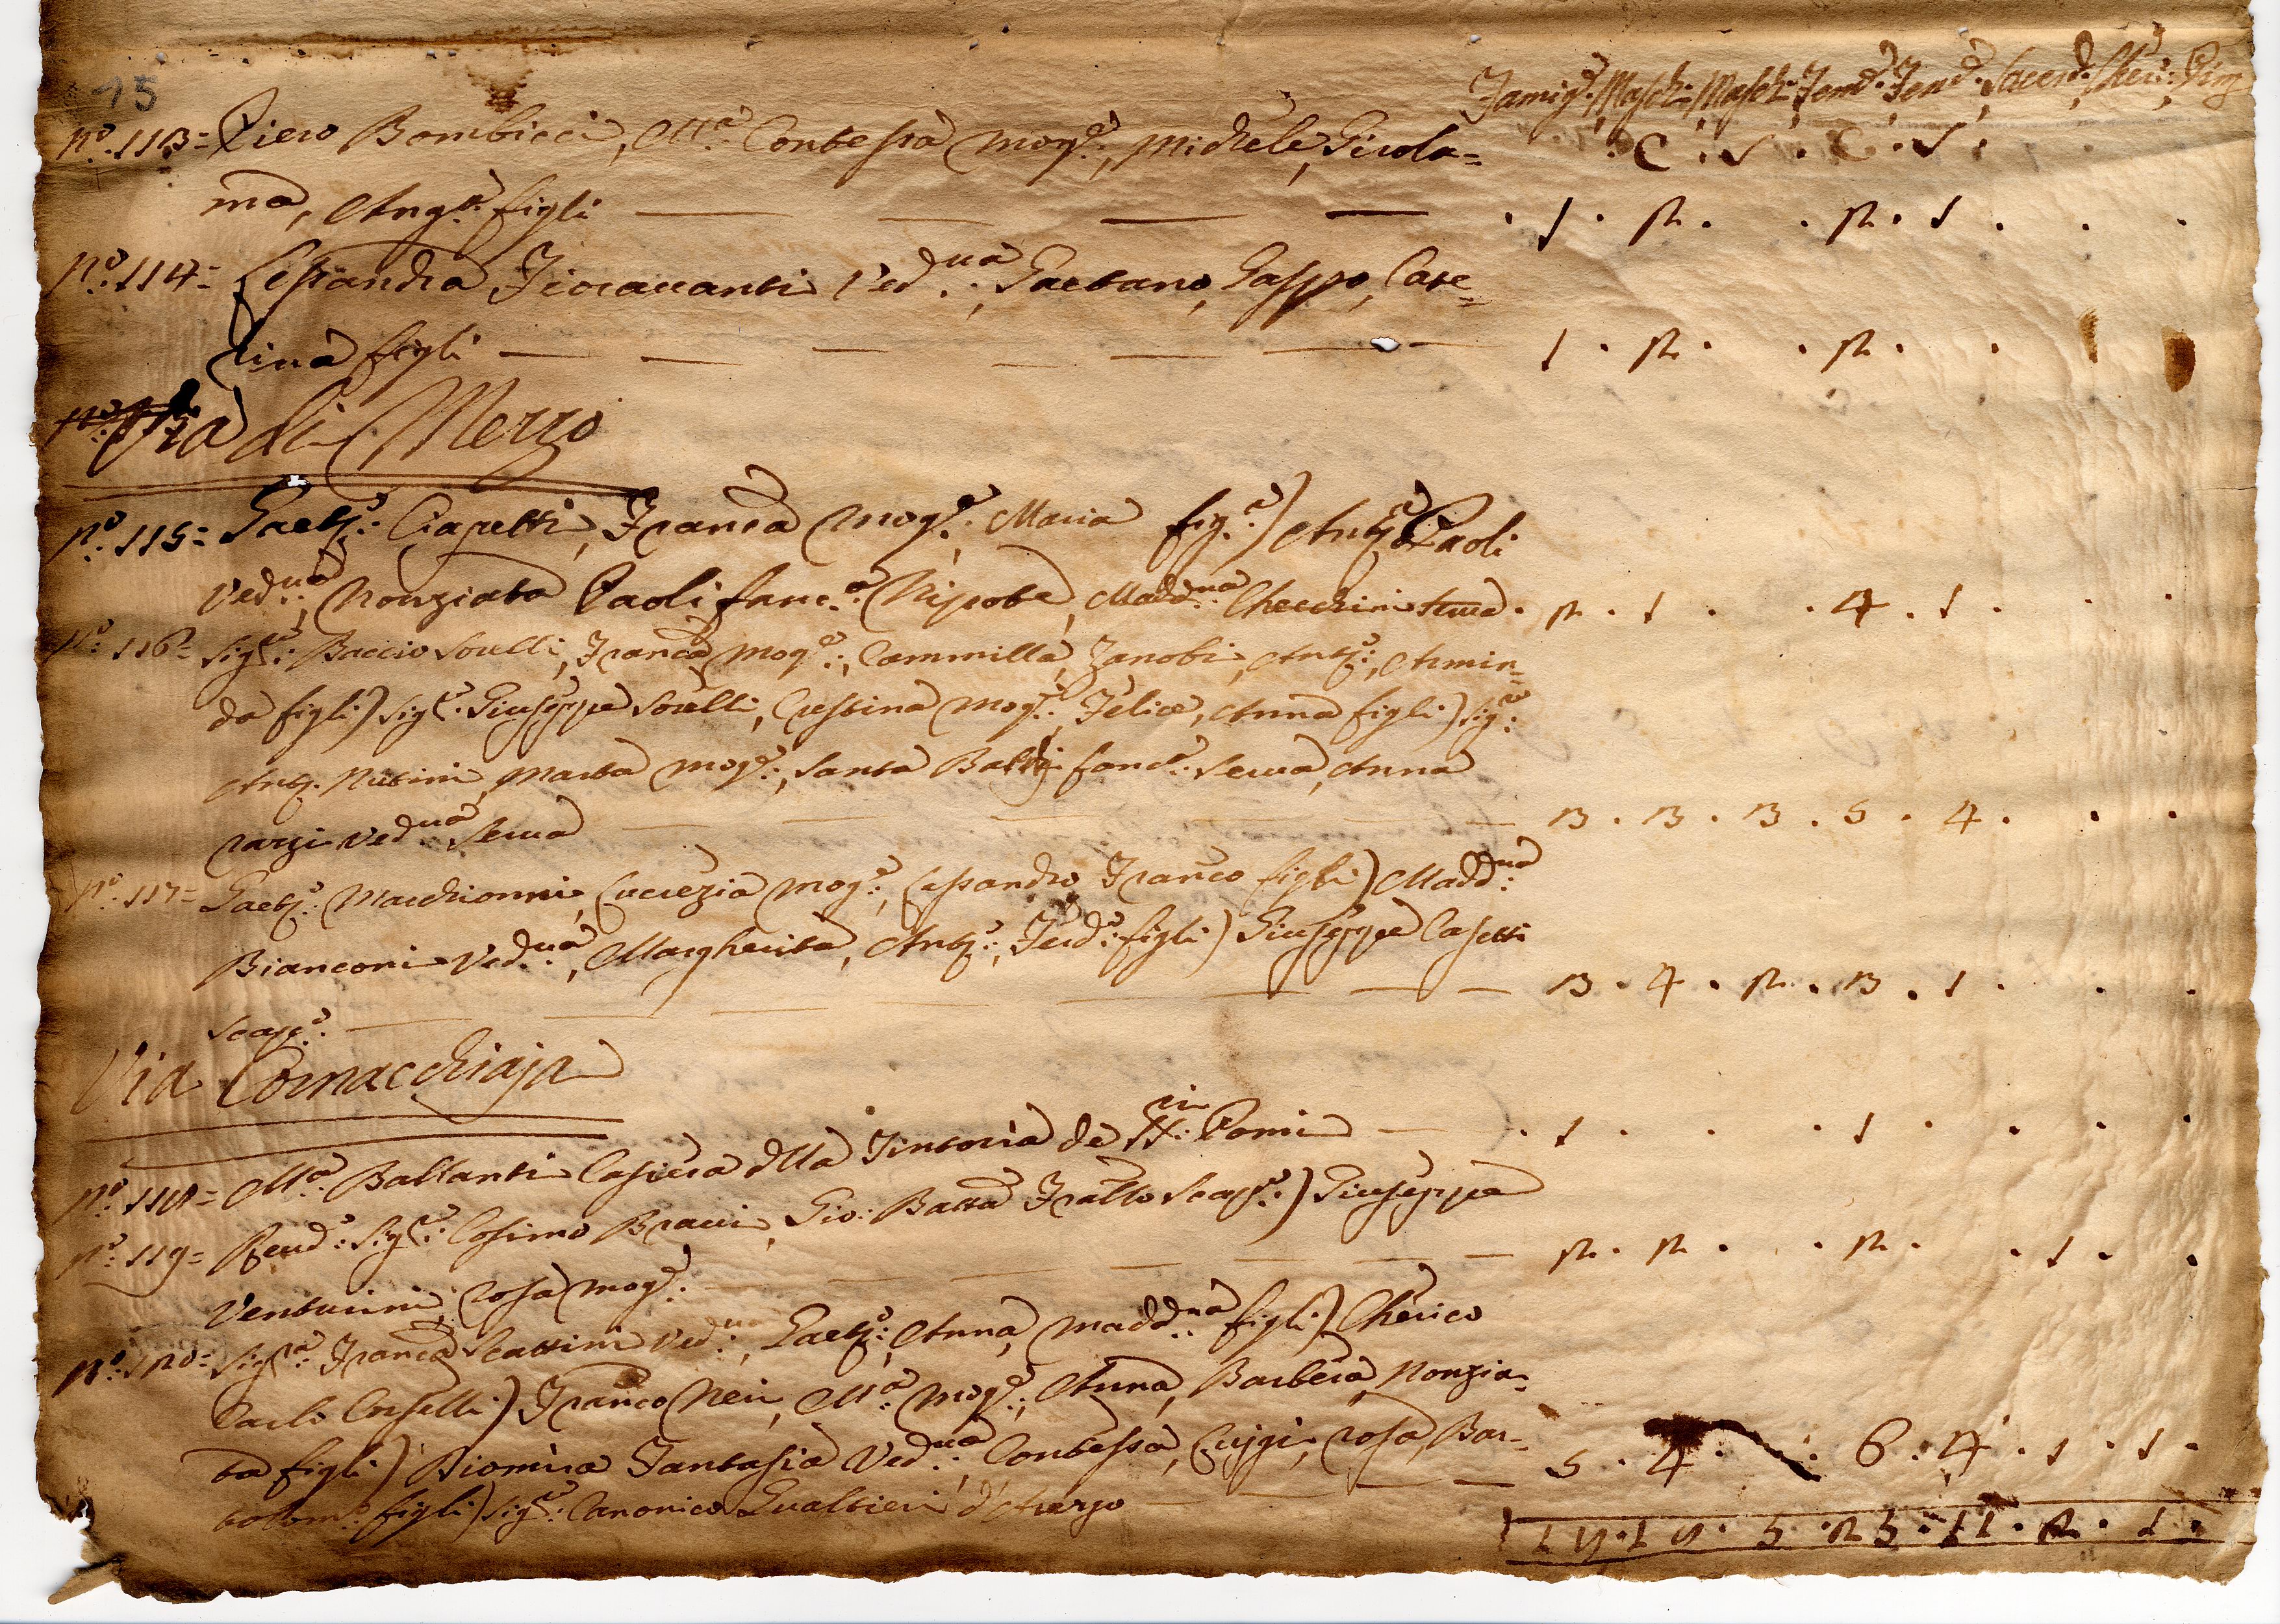 15
Famig.e Masch: Masch: Fem.e Fem.e Sacerd. Cher:
C . S . C . S .
N.o 113= Piero Bombicci, M.a Contessa mog.e, Michele, Girola=
ma, Ang.a figli — — — — . 1 . 2 . . 2 . 1 . . .
N.o 114= Lessandra Fioravanti Ved.ua, Gaetano, Gasppo, Cate=
rina figli — — — — — — 1 . 2 . . 2 . .
Via di Mezzo
N.o 115= Gaet.o Ciapetti, Fran.ca mog.e, Maria fig.a) Ant.a Paoli
Ved.ua, Nonziata Paoli fanc.a Nipote, Madd.na Checchini serva . 2 . 1 . . 4 . 1 . . .
N.o 116= Sig.r Baccio Sorelli, Fran.ca mog.e, Cammilla, Zanobi, Ant.o, Armin=
da figli) Sig.r Giuseppe Sorelli, Crestina mog.e, Felice, Anna figli) Sig.r
Ant.o Nutini, Marta mog.e, Santa fanc.a Serva, Anna
Ved.ua Serva — — — — — — 3 . 3 . 3 . 5 . 4 . . .
N.o 117= Gaet.o Marchionni, Lucrezia mog.e, Lessandro Fran.co figli) Madd.na
Bianconi Ved.ua, Margherita, Ant.o, Ferd.o figli) Giuseppe Casetti
scap.o — — — — — — 3 . 4 . 2 . 3 . 1 . . .
Via Cornacchiaja
N.o 118= M.a Ballanti Casiera d'lla Tintoria de SS.ri Pomi — . 1 . . . 1 . . . .
N.o 119= Reud.o Sig.r Cosimo Bracci, Gio: Batta Fra'llo scap.o) Giuseppe
Venturini, Rosa mog.e — — — — — — 2 . 2 . . 2 . . 1 . .
N.o 120= Sig.ra Fran.ca Scattini Ved.ua, Gaet.o, Anna, Madd.na figli) Cherico
Carlo) Fran.co Neri, M.a mog.e, Anna, Barbera, Nonzia=
ta figli) Diomira Fantasia Ved.ua, Contessa, Luigi, Rosa, Bar=
tolom.o figli) Sig.r Canonico Gualtieri d'Arezzo — — — — 5 . 4 . . 6 . 4 . 1 . 1 .
18 . 18 . 5 . 25 . 11 . 2 . 1 .